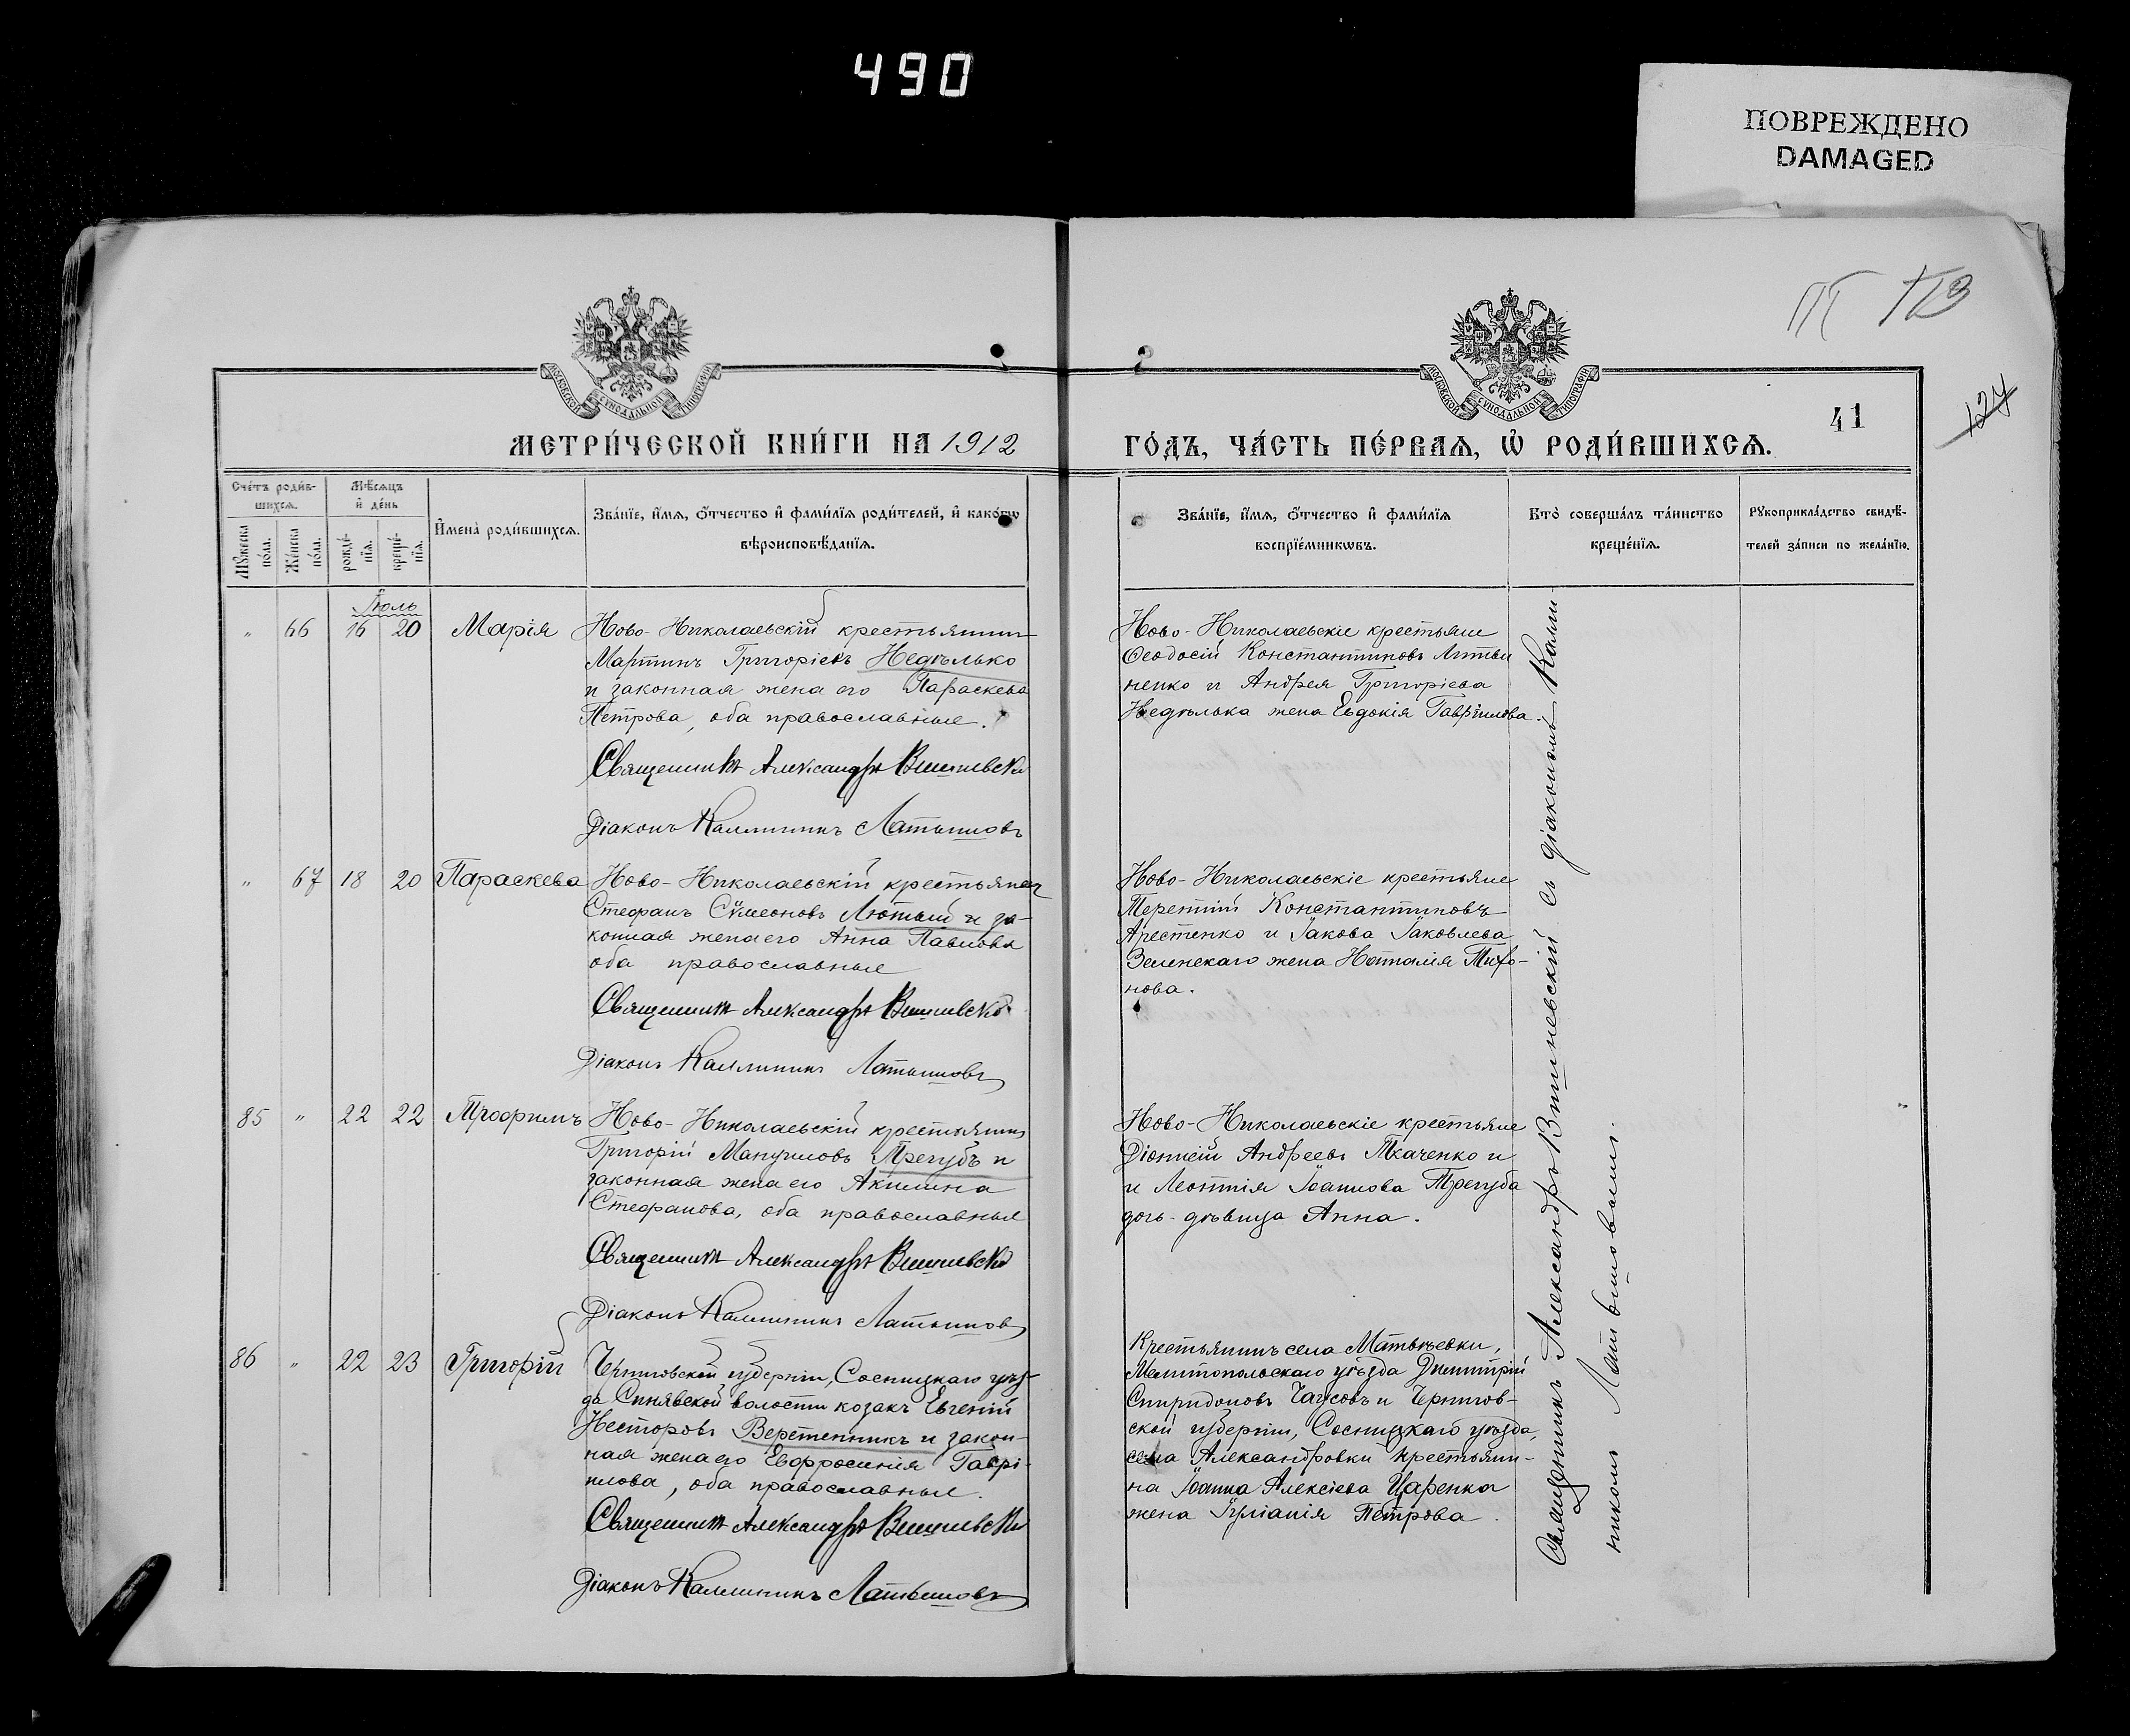 490
ПОВРЕЖДЕНО
DAMAGED
МОСКОВСКОЙ СѴНОДАЛЬНОЙ ТИПОГРАФІИ
МОСКОВСКОЙ СѴНОДАЛЬНОЙ ТИПОГРАФІИ
41
124
МЕТРИ́ЧЕСКОЙ КНИ́ГИ НА 1912
ГО́ДЪ, ЧА́СТЬ ПЕ́РВАѦ, Ѡ҆ РОДИ́ВШИХСѦ.
Сче́тъ роди́в-
шихсѧ.
Мꙋ́жеска по́ла.
Же́нска по́ла.
Мѣ́сѧцъ
и҆ де́нь
рожде́-
нїѧ.
креще́-
нїѧ.
И҆мена̀ роди́вшихсѧ.
Зва́нїе, и҆́мѧ, ѻ҆́тчество и҆ фами́лїѧ роди́телей, и҆ како́гѡ
вѣроисповѣ́данїѧ.
Зва́нїе, и҆́мѧ, ѻ҆́тчество и҆ фами́лїѧ
воспрїе́мникѡвъ.
Кто̀ соверша́лъ та́инство
креще́нїѧ.
Рꙋкоприкла́дство свидѣ́-
телей за́писи по жела́нїю.
Іюль
" 66 16 20 Марія
Ново-Николаевскій крестьянин
Мартинъ Григоріевъ Недѣлько
и законная жена его Параскева
Петрова, оба православные.
Священникъ Александръ Вишневскій
Діаконъ Каллиникъ Латышовъ
Ново-Николаевскіе крестьяне
Ѳеодосій Константиновъ Литви
ненко и Андрея Григоріева
Недѣлька жена Евдокія Гавріилова.
" 67 18 20 Параскева
Ново-Николаевскій крестьянин
Стефанъ Сѵмеоновъ Лютый и за-
конная жена его Анна Павлова
оба православные
Священникъ Александръ Вишневскій
Діаконъ Каллиникъ Латышовъ
Ново-Николаевскіе крестьяне
Терентій Константиновъ
Арестенко и Іакова Іаковлева
Зеленскаго жена Наталія Тихо-
нова.
85 " 22 22 Трофимъ
Ново-Николаевскій крестьянин
Григорій Мануиловъ Трегубъ и
законная жена его Акилина
Стефанова, оба православные
Священникъ Александръ Вишневскій
Діаконъ Каллиникъ Латышовъ
Ново-Николаевскіе крестьяне
Діонисій Андреевъ Ткаченко и
и Леонтія Іоаннова Трегуба
дочь-дѣвица Анна.
86 " 22 23 Григорій
Черниговской губерніи, Сосницкаго уѣз-
да Синявской волости козакъ Евгеній
Несторовъ Веретенникъ и закон-
ная жена его Евфросинія Гаврі-
илова, оба православные.
Священникъ Александръ Вишневскій
Діаконъ Каллиникъ Латышовъ
Крестьянинъ села Матвѣевки,
Мелитопольскаго уѣзда Димитрій
Спиридоновъ Чаусовъ и Чернигов-
ской губерніи, Сосницкаго уѣзда,
села Александровки крестьяни-
на Іоанна Алексіева Царенка
жена Іуліанія Петрова.
Священникъ Александръ Вишневскій съ діакономъ Калли-
никомъ Латышовымъ.